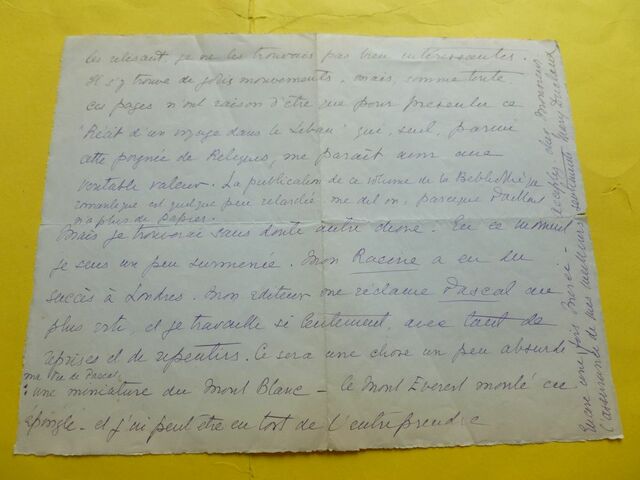 les relisant je ne les trouvais pas bien intéressantes.
Il s'y trouve de jolis mouvements. mais, comme toute
ces pages n'ont raison d'être que pour présenter ce
"Récit d'un voyage dans le Liban" qui, seul, parmi
cette poignée de Reliques, me paraît avoir une
véritable valeur. La publication de ce volume de la Bibliothèque
romantique est quelque peu retardée me dit on, parce que
n'a plus de papier.
Mais je trouverai sans doute autre chose. En ce moment
je suis un peu surmenée. Mon Racine a eu du
succès à Londres. Mon editeur me réclame Pascal au
plus vite, et je travaille si lentement, avec tant de
reprises et de repentirs. Ce sera une chose un peu absurde
ma Vie de Pascal
: une miniature du Mont Blanc - le Mont Everest monté en
épingle - et j'ai peut être eu tort de l'entreprendre
Encore une fois Merci -
acceptez cher Monsieur
l'assurance de mes meilleurs sentiments Mary Duclaux